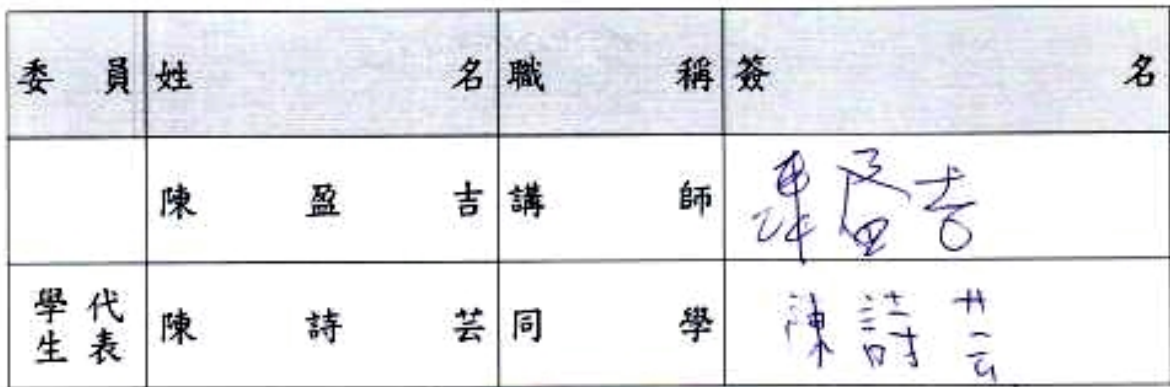 委員 姓名 職稱 簽名
陳盈吉 講師 陳盈吉
學生代表 陳詩芸 同學 陳詩芸